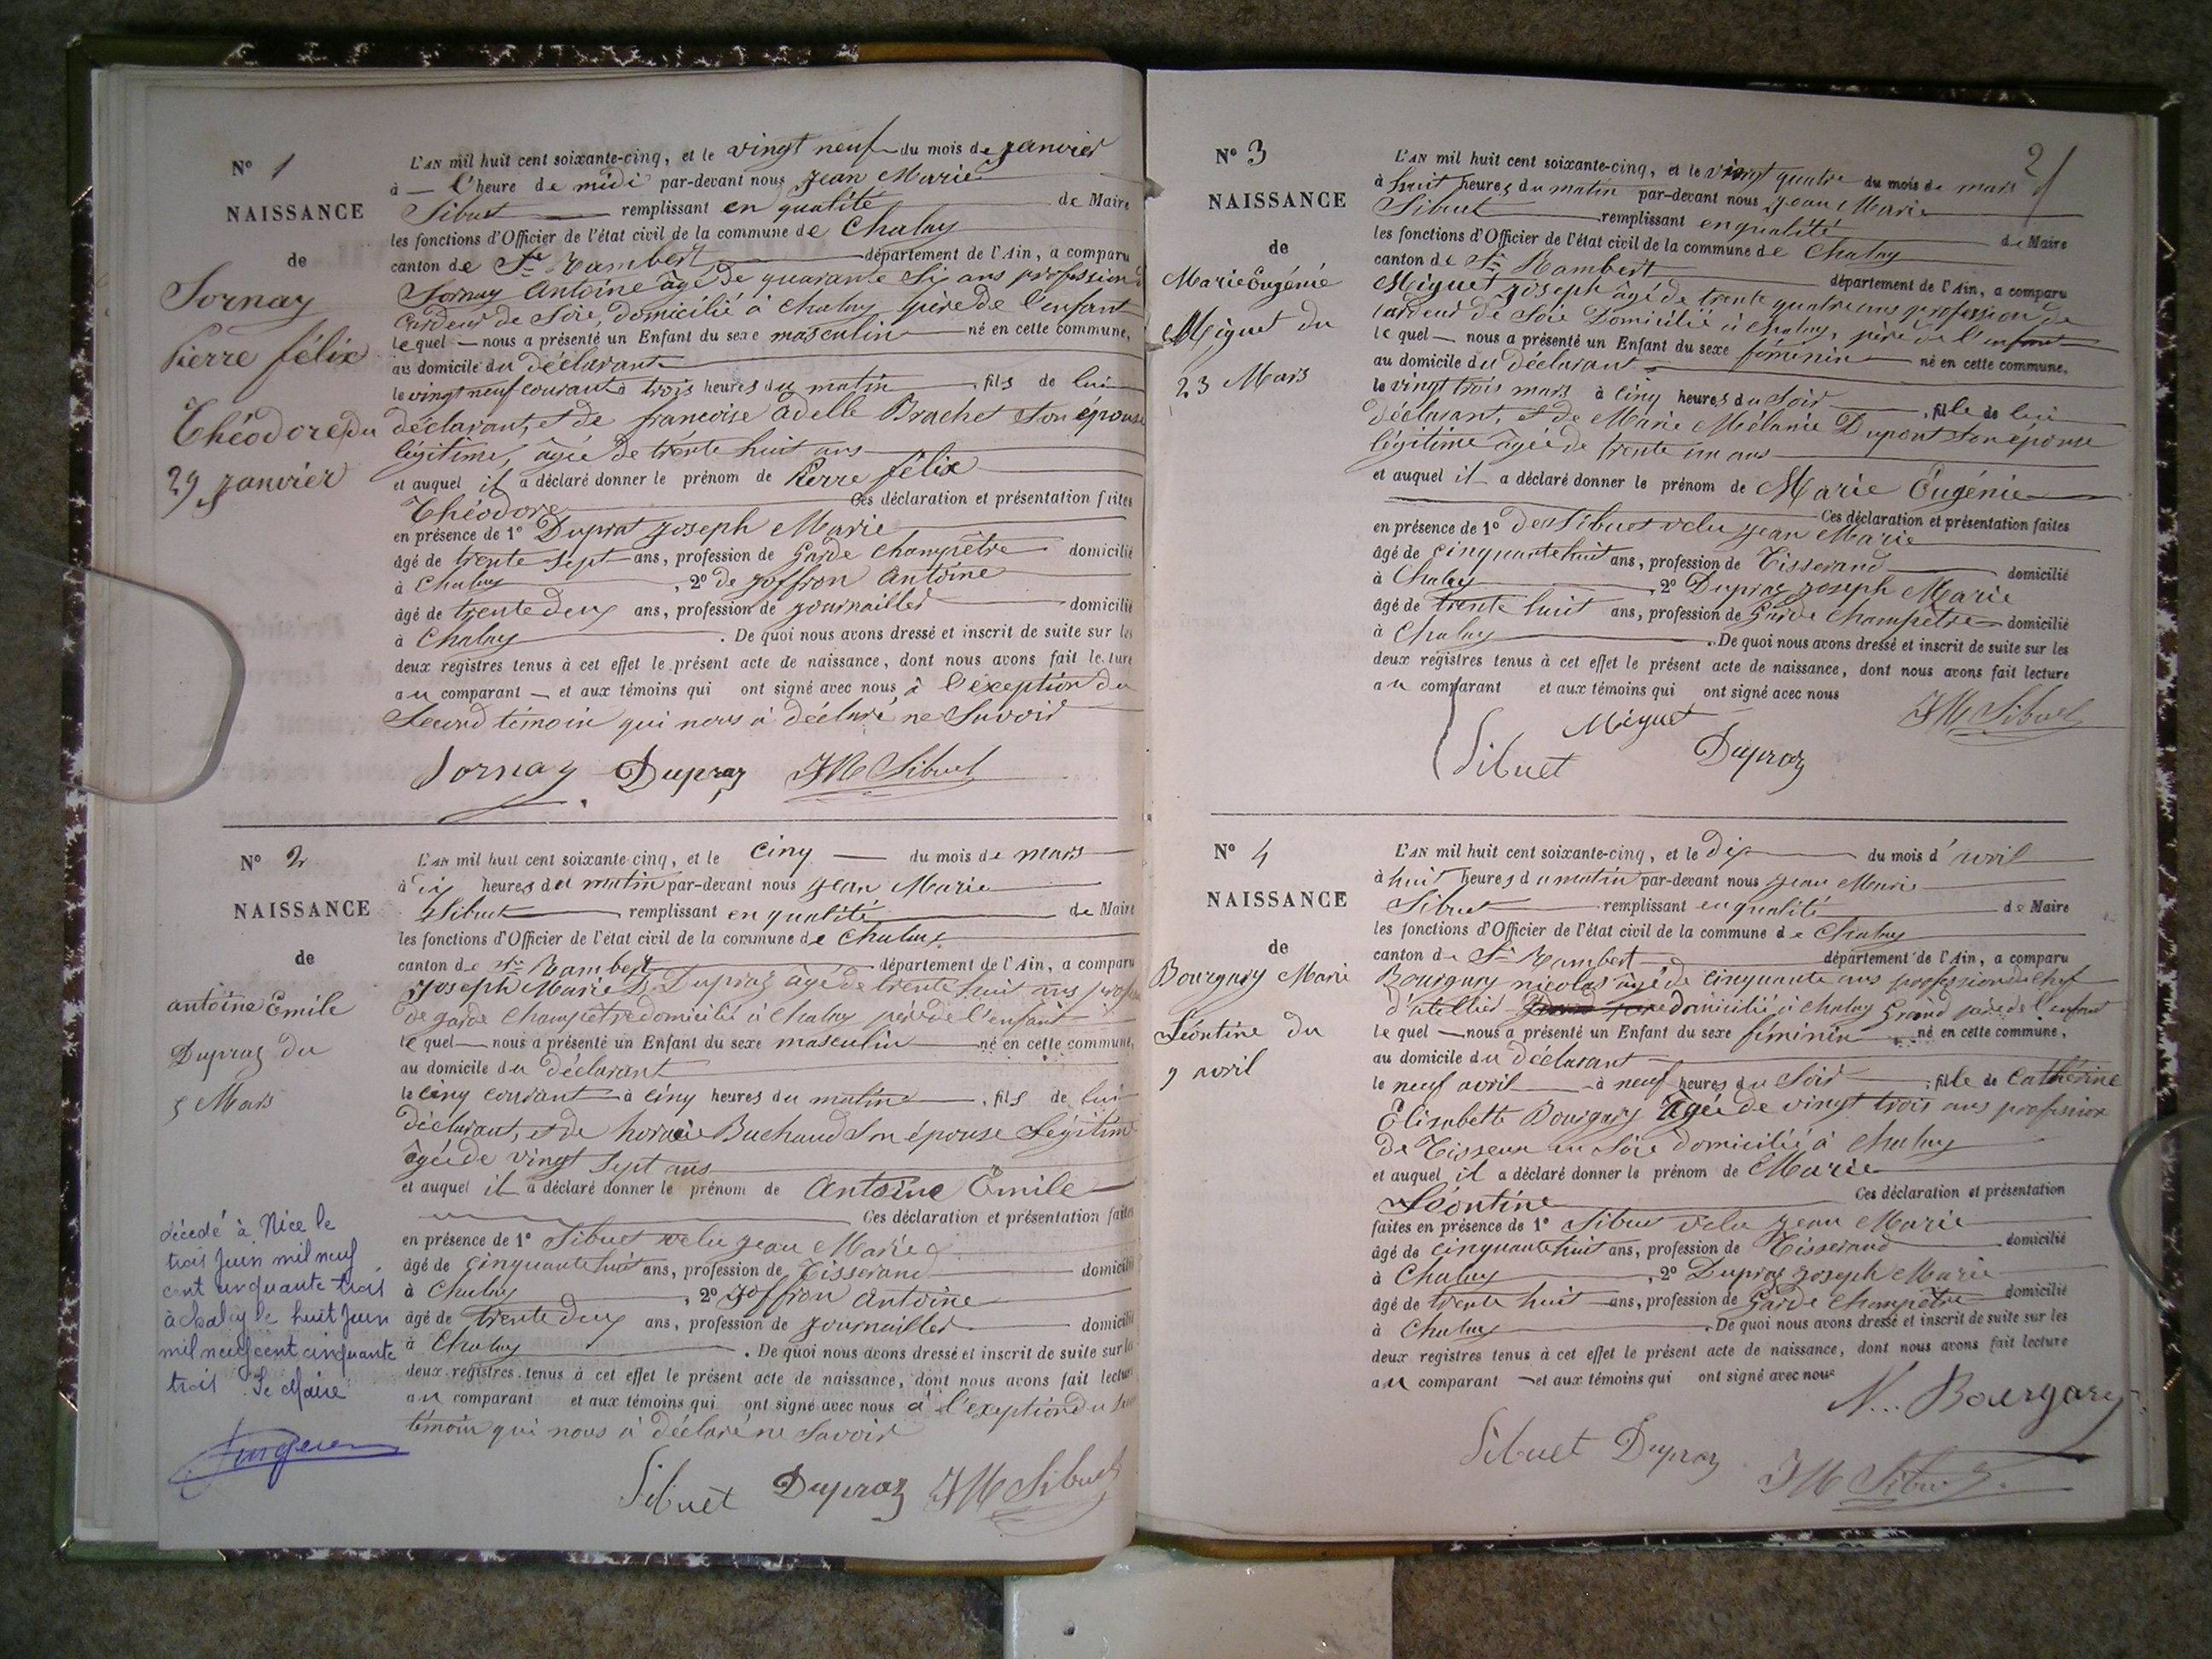 N° 1
NAISSANCE
de
Sornay
Pierre félix
Théodore, du
29 janvier
L'AN mil huit cent soixante-cinq, et le vingt neuf du mois de janvier
à — l'heure de midi par-devant nous Jean Marie
Sibuet remplissant en qualité de Maire
les fonctions d'Officier de l'état civil de la commune de Chaley
canton de St Rambert département de l'Ain, a comparu
Sornay Antoine âgé de quarante six ans profession
Cardeur de Soie, domicilié à Chaley père de l'enfant
lequel — nous a présenté un Enfant du sexe masculin né en cette commune,
au domicile du déclarant
le vingt neuf courant à trois heures du matin, fils de lui
déclarant, et de francoise adelle Brachet son épouse
légitime, âgée de trente huit ans
et auquel il a déclaré donner le prénom de Pierre félix
Théodore Ces déclaration et présentation faites
en présence de 1° Dupraz Joseph Marie
âgé de trente sept ans, profession de Garde champêtre domicilié
à Chaley, 2° de Joffron Antoine
âgé de trente deux ans, profession de journaillier domicilié
à Chaley. De quoi nous avons dressé et inscrit de suite sur les
deux registres tenus à cet effet le présent acte de naissance, dont nous avons fait lecture
au comparant — et aux témoins qui ont signé avec nous à l'exception du
Second témoin qui nous à déclaré ne Savoir
Sornay Dupraz JM Sibuet
N° 2
NAISSANCE
de
antoine Emile
Dupraz du
5 Mars
décédé à Nice le
trois Juin mil neuf
cent cinquante trois
à Chaley le huit Juin
mil neuf cent cinquante
trois. Le Maire
L'AN mil huit cent soixante-cinq, et le cinq — du mois de mars
à dix heures du matin par-devant nous Jean Marie
Sibuet remplissant en qualité de Maire
les fonctions d'Officier de l'état civil de la commune de Chaley
canton de St Rambert département de l'Ain, a comparu
Joseph Marie Dupraz âgé de trente huit ans
de garde champêtre domicilié à Chaley père de l'enfant
lequel — nous a présenté un Enfant du sexe masculin né en cette commune,
au domicile du déclarant
le cinq courant à cinq heures du matin, fils de lui
déclarant, et de Buchaud son épouse légitime
âgée de vingt sept ans
et auquel il a déclaré donner le prénom de Antoine Emile
Ces déclaration et présentation faites
en présence de 1° Sibuet velu Jean Marie
âgé de cinquante huit ans, profession de Tisserand domicilié
à Chaley, 2° Joffron Antoine
âgé de trente deux ans, profession de journaillier domicilié
à Chaley. De quoi nous avons dressé et inscrit de suite sur les
deux registres tenus à cet effet le présent acte de naissance, dont nous avons fait lecture
au comparant et aux témoins qui ont signé avec nous à l'exeption du
témoin qui nous à déclaré ne Savoir
Sibuet Dupraz JM Sibuet
2
N° 3
NAISSANCE
de
Marie Eugénie
Miguet du
23 Mars
L'AN mil huit cent soixante-cinq, et le vingt quatre du mois de mars
à huit heures du matin par-devant nous Jean Marie
Sibuet remplissant en qualité de Maire
les fonctions d'Officier de l'état civil de la commune de Chaley
canton de St Rambert département de l'Ain, a comparu
Miguet Joseph âgé de trente quatre ans profession de
Cardeur de Soie Domicilié à Chaley, père de l'enfant
lequel — nous a présenté un Enfant du sexe féminin né en cette commune,
au domicile du déclarant
le vingt trois mars à cinq heures du Soir, fille de lui
déclarant, et de Marie Mélanie Dupont son épouse
légitime âgée de trente un ans
et auquel il a déclaré donner le prénom de Marie Eugénie
Ces déclaration et présentation faites
en présence de 1° de Sibuet velu Jean Marie
âgé de cinquante huit ans, profession de Tisserand domicilié
à Chaley, 2° Dupraz Joseph Marie
âgé de trente huit ans, profession de Garde champêtre domicilié
à Chaley. De quoi nous avons dressé et inscrit de suite sur les
deux registres tenus à cet effet le présent acte de naissance, dont nous avons fait lecture
au comparant et aux témoins qui ont signé avec nous
Miguet JM Sibuet
Sibuet Dupraz
N° 4
NAISSANCE
de
Bourgary Marie
Léontine du
9 avril
L'AN mil huit cent soixante-cinq, et le dix du mois d'avril
à huit heures du matin par-devant nous Jean Marie
Sibuet remplissant en qualité de Maire
les fonctions d'Officier de l'état civil de la commune de Chaley
canton de St Rambert département de l'Ain, a comparu
Bourgary nicolas âgé de cinquante ans profession de chef
d'attellier domicilié à Chaley Grand père de l'enfant
lequel — nous a présenté un Enfant du sexe féminin né en cette commune,
au domicile du déclarant
le neuf avril à neuf heures du Soir, fille de Catherine
Elisabette Bourgary âgée de vingt trois ans profession
de Tisseuse en Soie domicilié à Chaley
et auquel il a déclaré donner le prénom de Marie
Léontine Ces déclaration et présentation
faites en présence de 1° Sibuet velu Jean Marie
âgé de cinquante huit ans, profession de Tisserand domicilié
à Chaley, 2° Dupraz Joseph Marie
âgé de trente huit ans, profession de Garde champêtre domicilié
à Chaley. De quoi nous avons dressé et inscrit de suite sur les
deux registres tenus à cet effet le présent acte de naissance, dont nous avons fait lecture
au comparant — et aux témoins qui ont signé avec nous
N. Bourgary
Sibuet Dupraz JM Sibuet